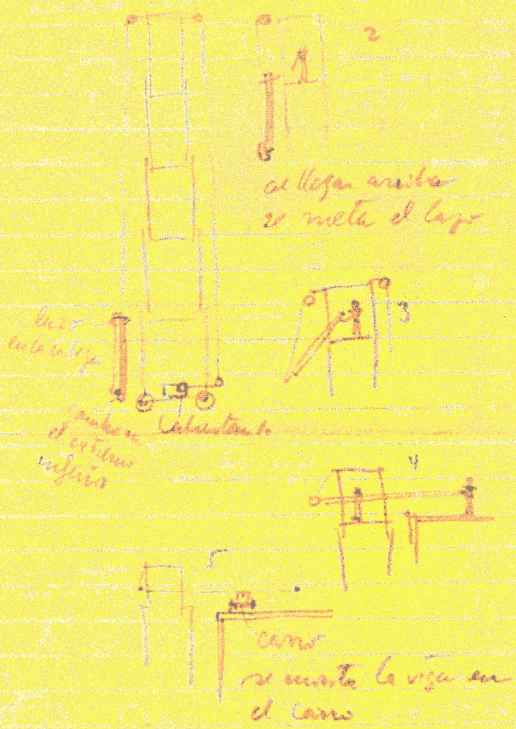 2
al llegar arriba
se meta el lazo
3
lazo
en la viga
gancho en
el extremo
inferior
Cabrestante
4
5
carro
se monta la viga en
el carro